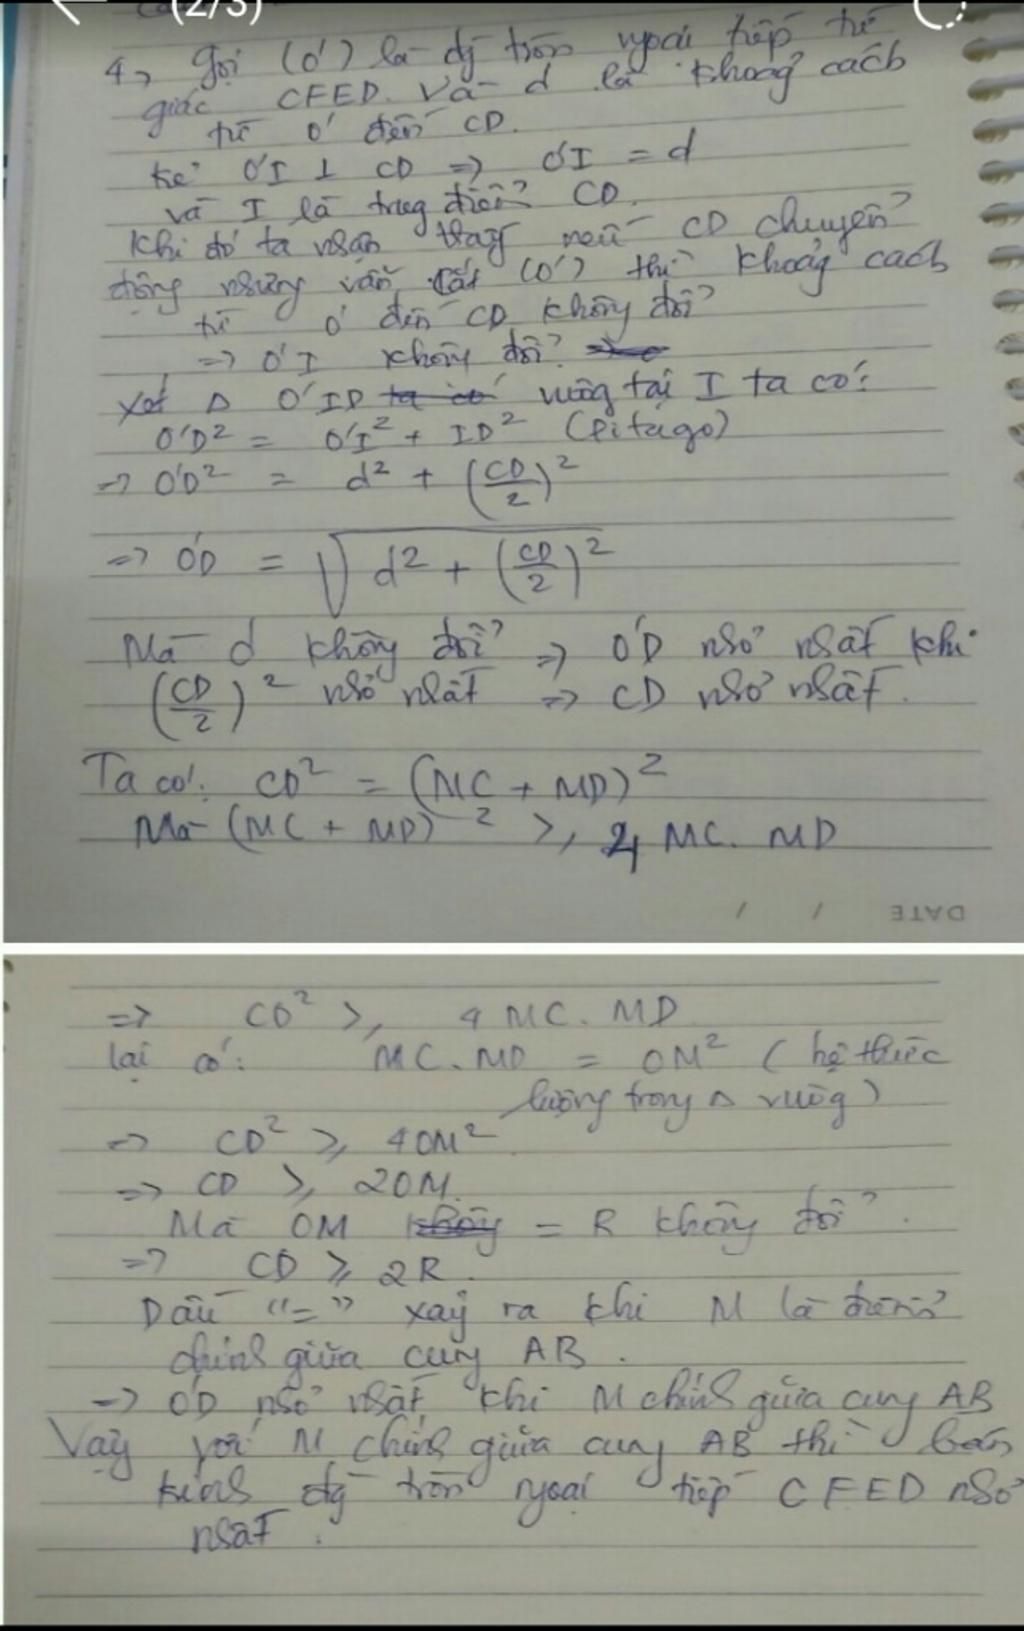 (2/3)
4, Gọi (O') là đg tròn ngoại tiếp tứ
giác CFED. Và d là khoảng cách
từ O' đến CD.
Kẻ O'I ⊥ CD => O'I = d
và I là trung điểm CD.
Khi đó ta nhận thấy nếu CD chuyển
động nhưng vẫn cắt (O') thì khoảng cách
từ O' đến CD không đổi
=> O'I không đổi
Xét Δ O'ID ta có vuông tại I ta có:
O'D² = O'I² + ID² (Pitago)
=> O'D² = d² + (CD/2)²
=> O'D = √(d² + (CD/2)²)
Mà d không đổi => O'D nhỏ nhất khi
(CD/2)² nhỏ nhất => CD nhỏ nhất.
Ta có: CD² = (MC + MD)²
Mà (MC + MD)² >, 4 MC. MD
DATE / /
=> CD² >, 4 MC. MD
lại có: MC.MD = OM² (hệ thức
lượng trong Δ vuông)
=> CD² ≥ 4OM²
=> CD ≥ 2OM.
Mà OM không = R không đổi.
=> CD ≥ 2R.
Dấu "=" xảy ra khi M là điểm
chính giữa cung AB.
=> O'D nhỏ nhất khi M chính giữa cung AB
Vậy với M chính giữa cung AB thì bán
kính đg tròn ngoại tiếp CFED nhỏ
nhất.